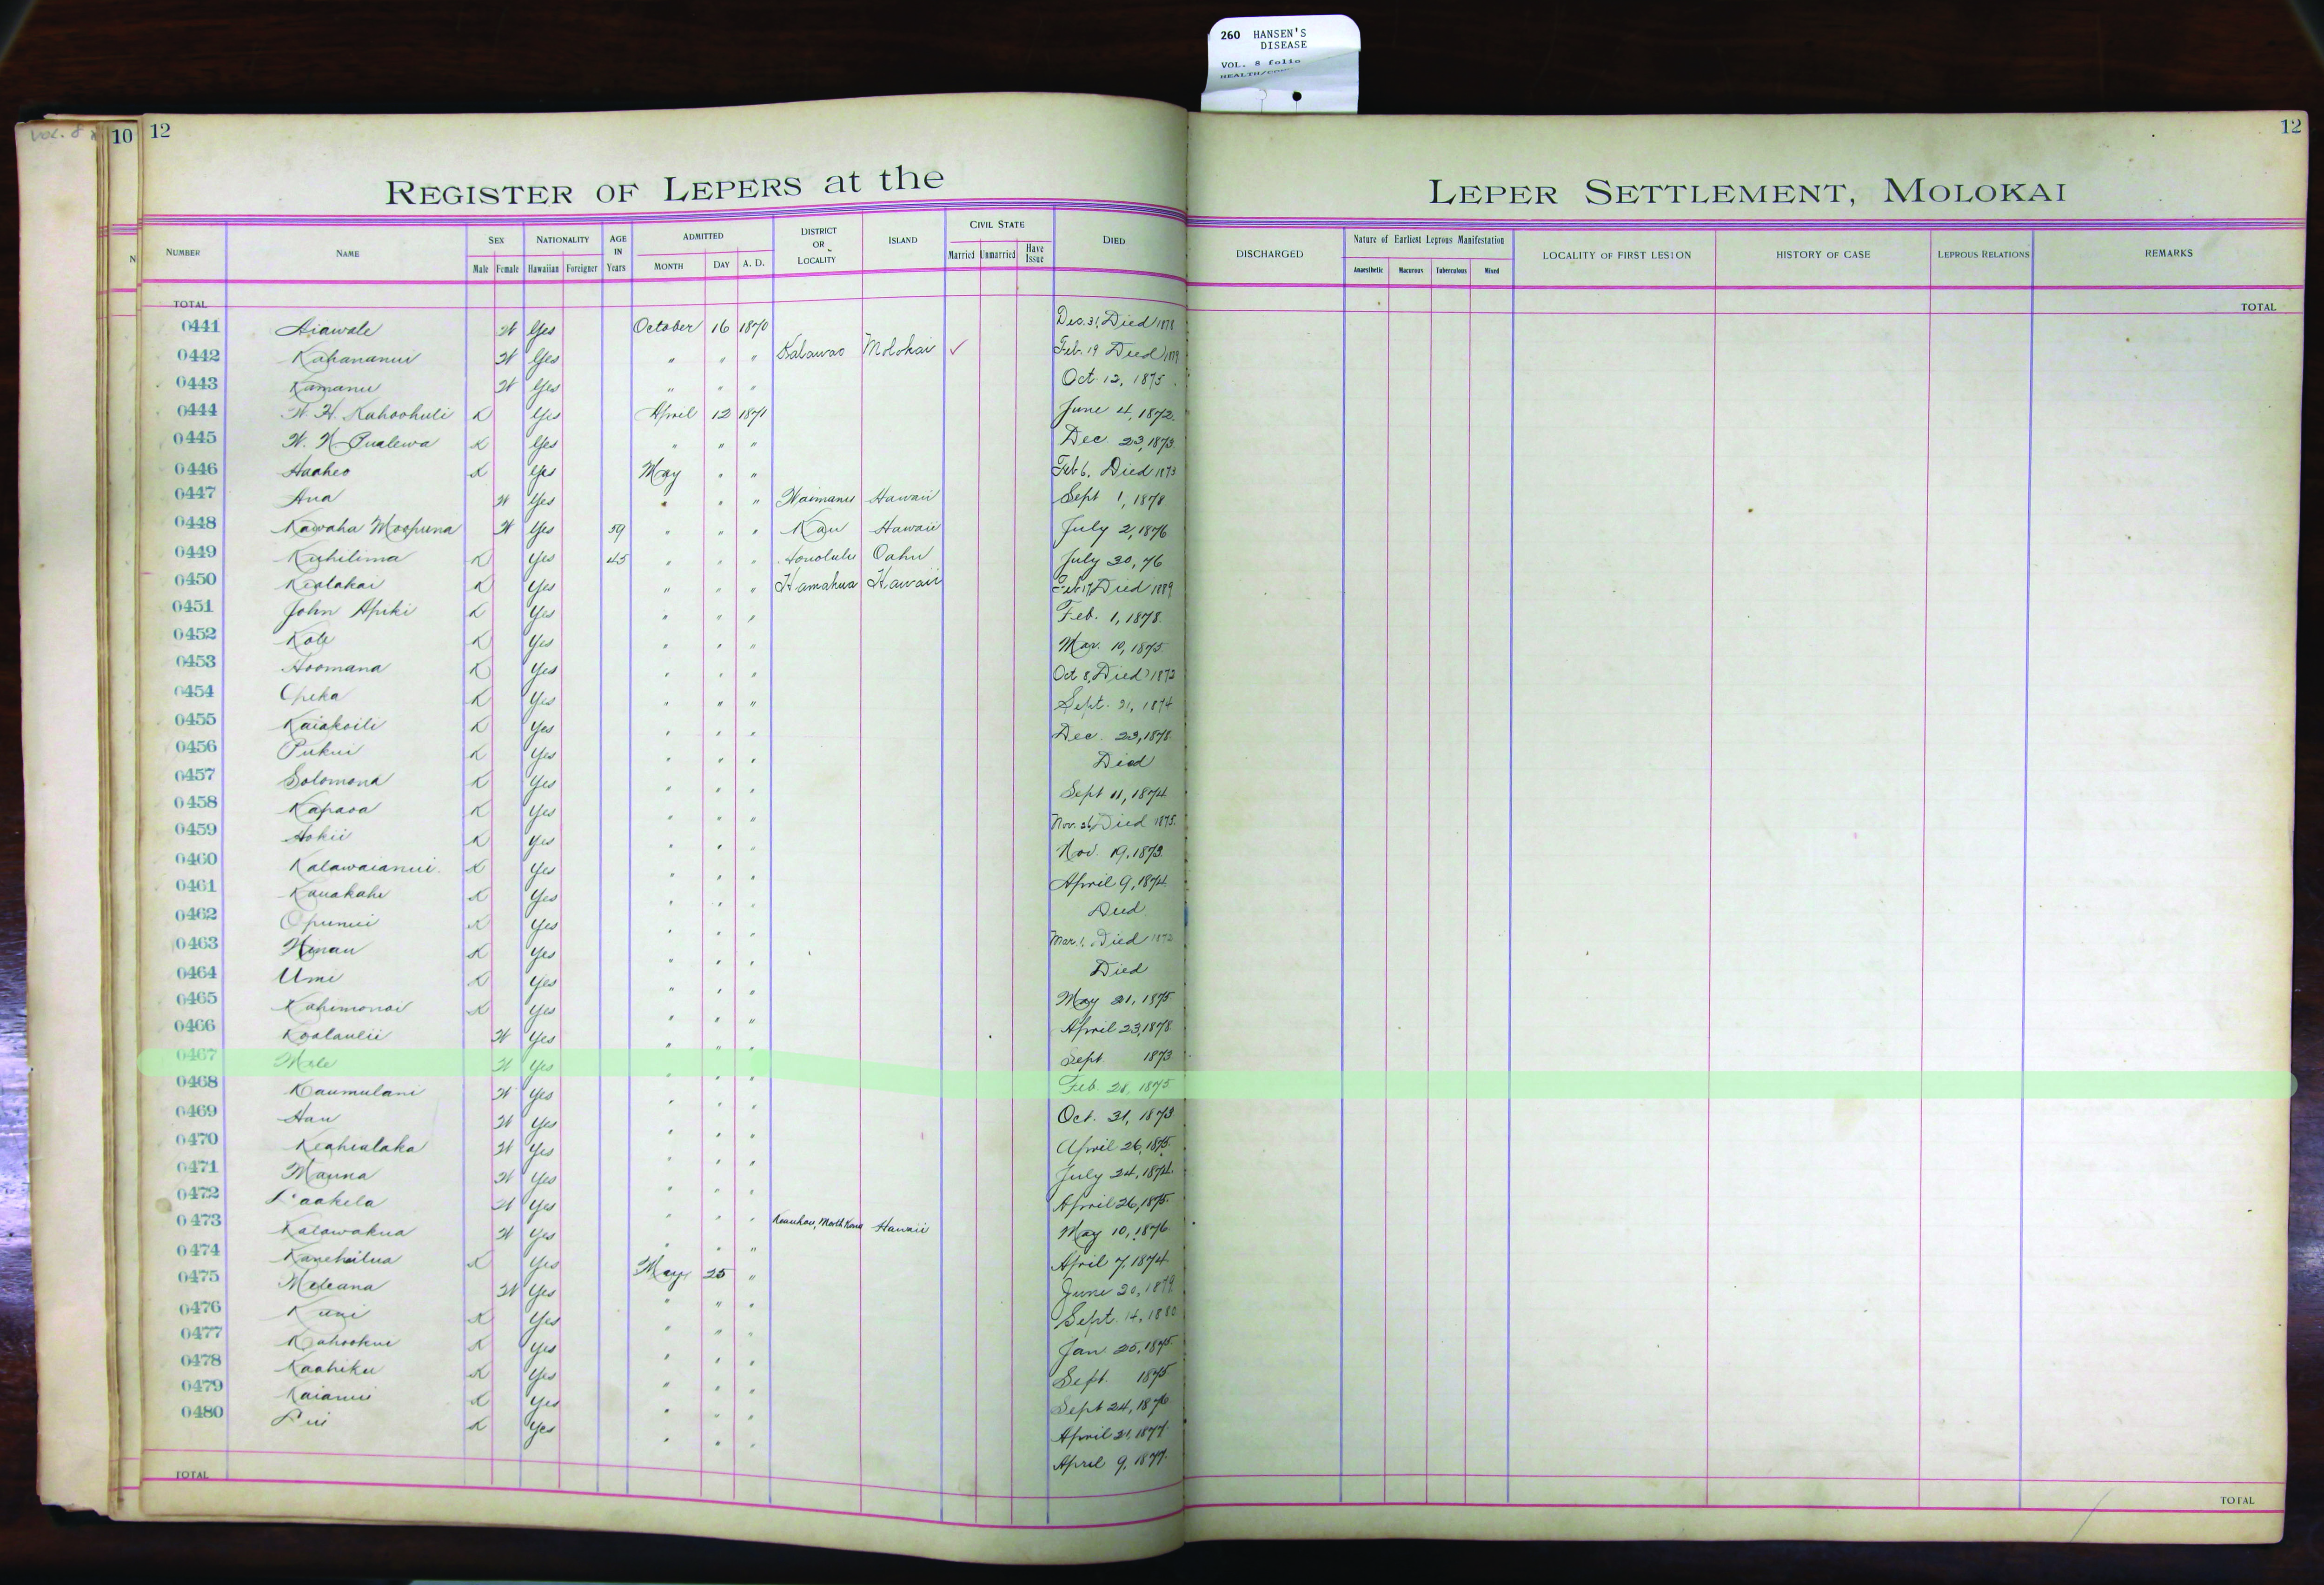 260 HANSEN'S
DISEASE
VOL. 8 folio
VOL. 8
10
12
12
REGISTER OF LEPERS at the LEPER SETTLEMENT, MOLOKAI
NUMBER NAME SEX Male Female NATIONALITY Hawaiian Foreigner AGE IN Years ADMITTED MONTH DAY A. D. DISTRICT OR LOCALITY ISLAND CIVIL STATE Married Unmarried Have Issue DIED DISCHARGED Nature of Earliest Leprous Manifestation Anaesthetic Macurous Tuberculous Mixed LOCALITY OF FIRST LESION HISTORY OF CASE LEPROUS RELATIONS REMARKS
TOTAL TOTAL
0441 Aiawale W Yes October 16 1870 Dec. 31, Died 1878
0442 Kahananui W Yes " " " Kalawao Molokai ✓ Feb. 19 Died 1879
0443 Kamanu W Yes " " " Oct. 12, 1875
0444 W. H. Kahoohuli K Yes April 12 1871 June 4, 1872
0445 W. N. Pualewa K Yes " " " Dec 23, 1873
0446 Haaheo K Yes May " " Feb 6, Died 1873
0447 Ana W Yes " " " Waimanu Hawaii Sept 1, 1878
0448 Kawaha Moopuna W Yes 59 " " " Kau Hawaii July 2, 1876
0449 Kuhilima K Yes 45 " " " Honolulu Oahu July 30, 76
0450 Kealakai K Yes " " " Hamakua Hawaii Feb 17, Died 1889
0451 John Apiki K Yes " " " Feb. 1, 1878
0452 Kole K Yes " " " Mar. 10, 1875
0453 Hoomana K Yes " " " Oct 8, Died 1873
0454 Opeka K Yes " " " Sept. 21, 1874
0455 Kaiakoili K Yes " " " Dec. 23, 1878
0456 Pukui K Yes " " " Died
0457 Solomona K Yes " " " Sept 11, 1874
0458 Kapaoa K Yes " " " Nov. 26, Died 1875
0459 Hokii K Yes " " " Nov. 19, 1873
0460 Kalawaianui K Yes " " " April 9, 1874
0461 Kauakahi K Yes " " " Died
0462 Opunui K Yes " " " Mar. 1, Died 1873
0463 Hinau K Yes " " " Died
0464 Umi K Yes " " " May 21, 1875
0465 Kahimonoi K Yes " " " April 23, 1878
0466 Koolaulii W Yes " " " Sept 1873
0467 Mele W Yes " " " Feb. 28, 1875
0468 Kaumulani W Yes " " " Oct. 31, 1873
0469 Hau W Yes " " " April 26, 1875
0470 Keahialaka W Yes " " " July 24, 1874
0471 Mauna W Yes " " " April 26, 1875
0472 Laakela W Yes " " " Keauhou, North Kona Hawaii May 10, 1876
0473 Kalawakua W Yes " " " April 7, 1874
0474 Kanehailua K Yes May 25 " June 20, 1879
0475 Meleana W Yes " " " Sept. 14, 1880
0476 Kuni K Yes " " " Jan 25, 1875
0477 Kahookui K Yes " " " Sept. 1875
0478 Kaahiku K Yes " " " Sept 24, 1876
0479 Kaianui K Yes " " " April 21, 1877
0480 Lui K Yes " " " April 9, 1877
TOTAL TOTAL